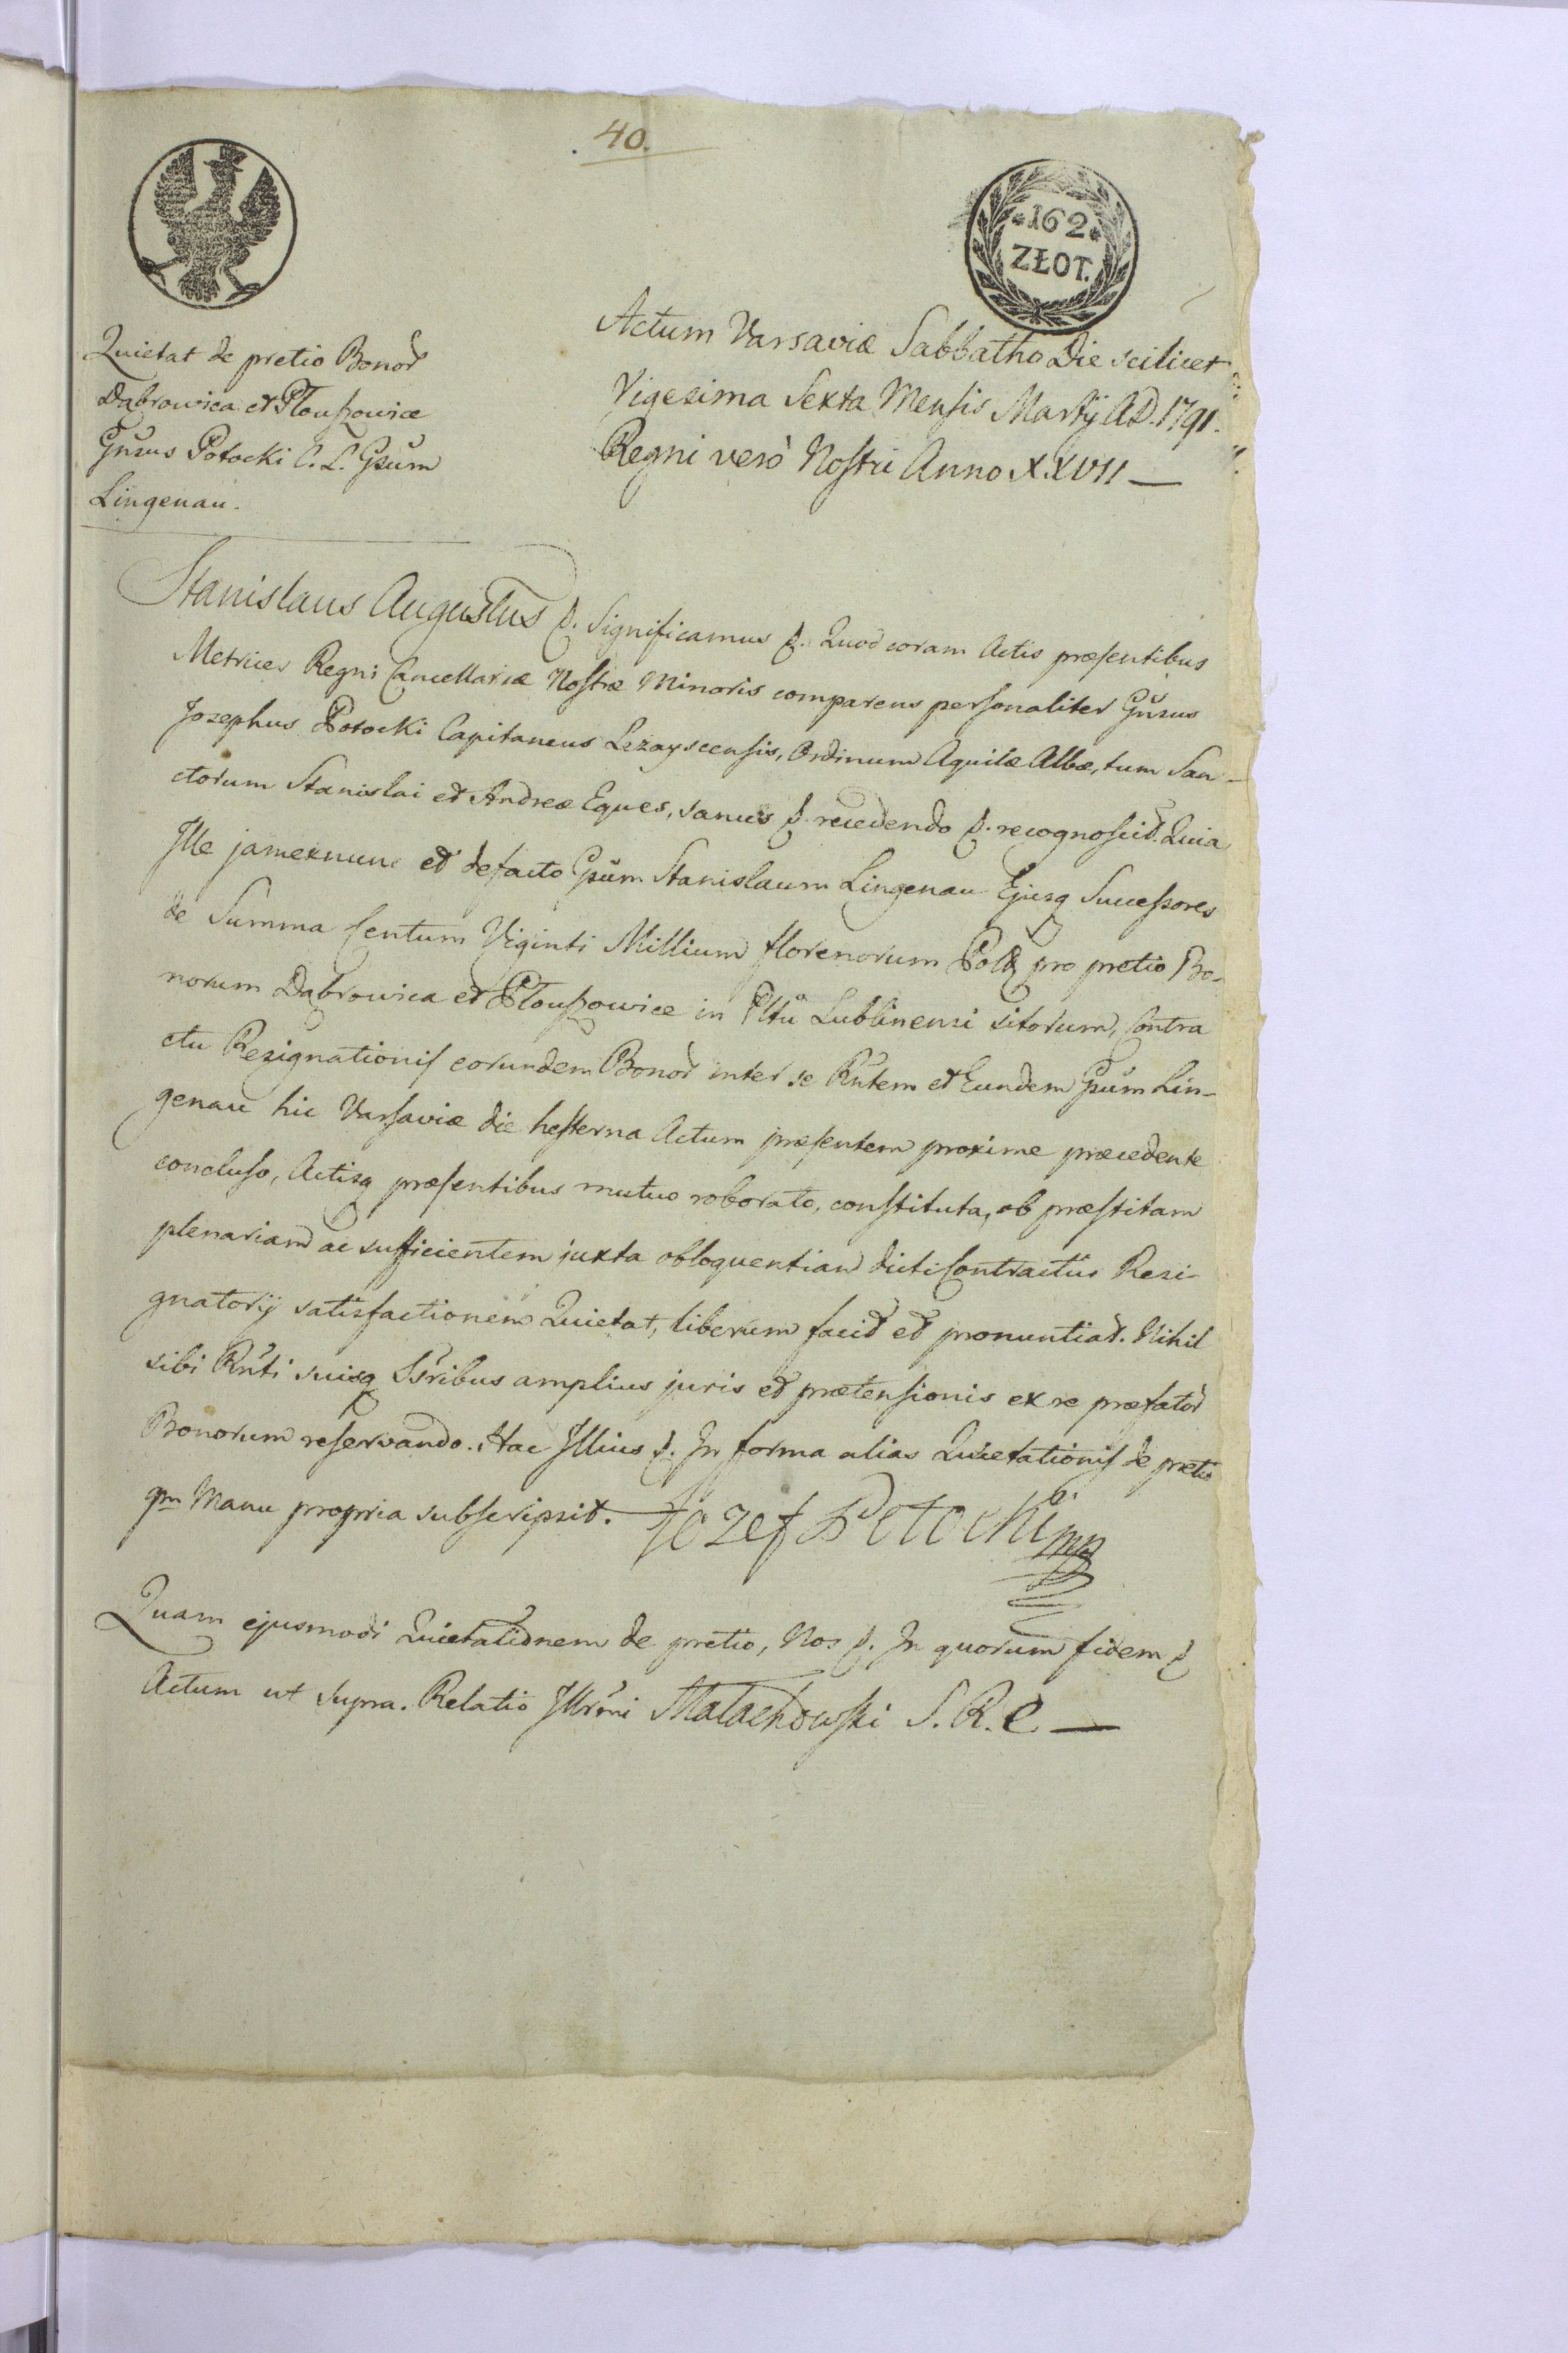 40.
*162*
ZŁOT.
Quietat de pretio Bonor
Dąbrowica et Płouszowice
Gnsus Potocki C. L. Gsum
Lingenau.
Actum Varsaviæ Sabbatho Die scilicet
Vigesima Sexta Mensis Martij AD. 1791.
Regni verò Nostri Anno XXVII —
Stanislaus Augustus p. Significamus p. Quod coram Actis præsentibus
Metrices Regni Cancellariæ Nostræ Minoris comparens personaliter Gnsus
Josephus Potocki Capitaneus Leżayscensis, Ordinum Aquilæ Albæ, tum San-
ctorum Stanislai et Andreæ Eques, sanus p. recedendo p. recognoscit. Quia
Ille jamexnunc et defacto Gsum Stanislaum Lingenau Ejusq Successores
de Summa Centum Viginti Millium florenorum Polz pro pretio Bo-
norum Dąbrowica et Płouszowice in Pltu Lublinensi sitorum, Contra
ctu Resignationis eorundem Bonor inter se Rntem et Eundem Gsum Lin-
genau hic Varsaviæ die hesterna Actum præsentem proxime præcedente
concluso, Actisq præsentibus mutuo roborato, constituta, ob præstitam
plenariam ac sufficientem juxta obloquentiam dicti Contractûs Resi-
gnatorij satisfactionem Quietat, liberum facit et pronuntiat. Nihil
sibi Rnti suisq Ssribus amplius juris et prætensionis ex re præfator
Bonorum reservando. Hac Illius p. In forma alias Quietationis de pretio
qm Manu propria subscripsit. Jozef Potocki mp
Quam ejusmodi Quietationem de pretio, Nos p. In quorum fidem p
Actum ut supra. Relatio Illrmi Małachowski S. R. C —